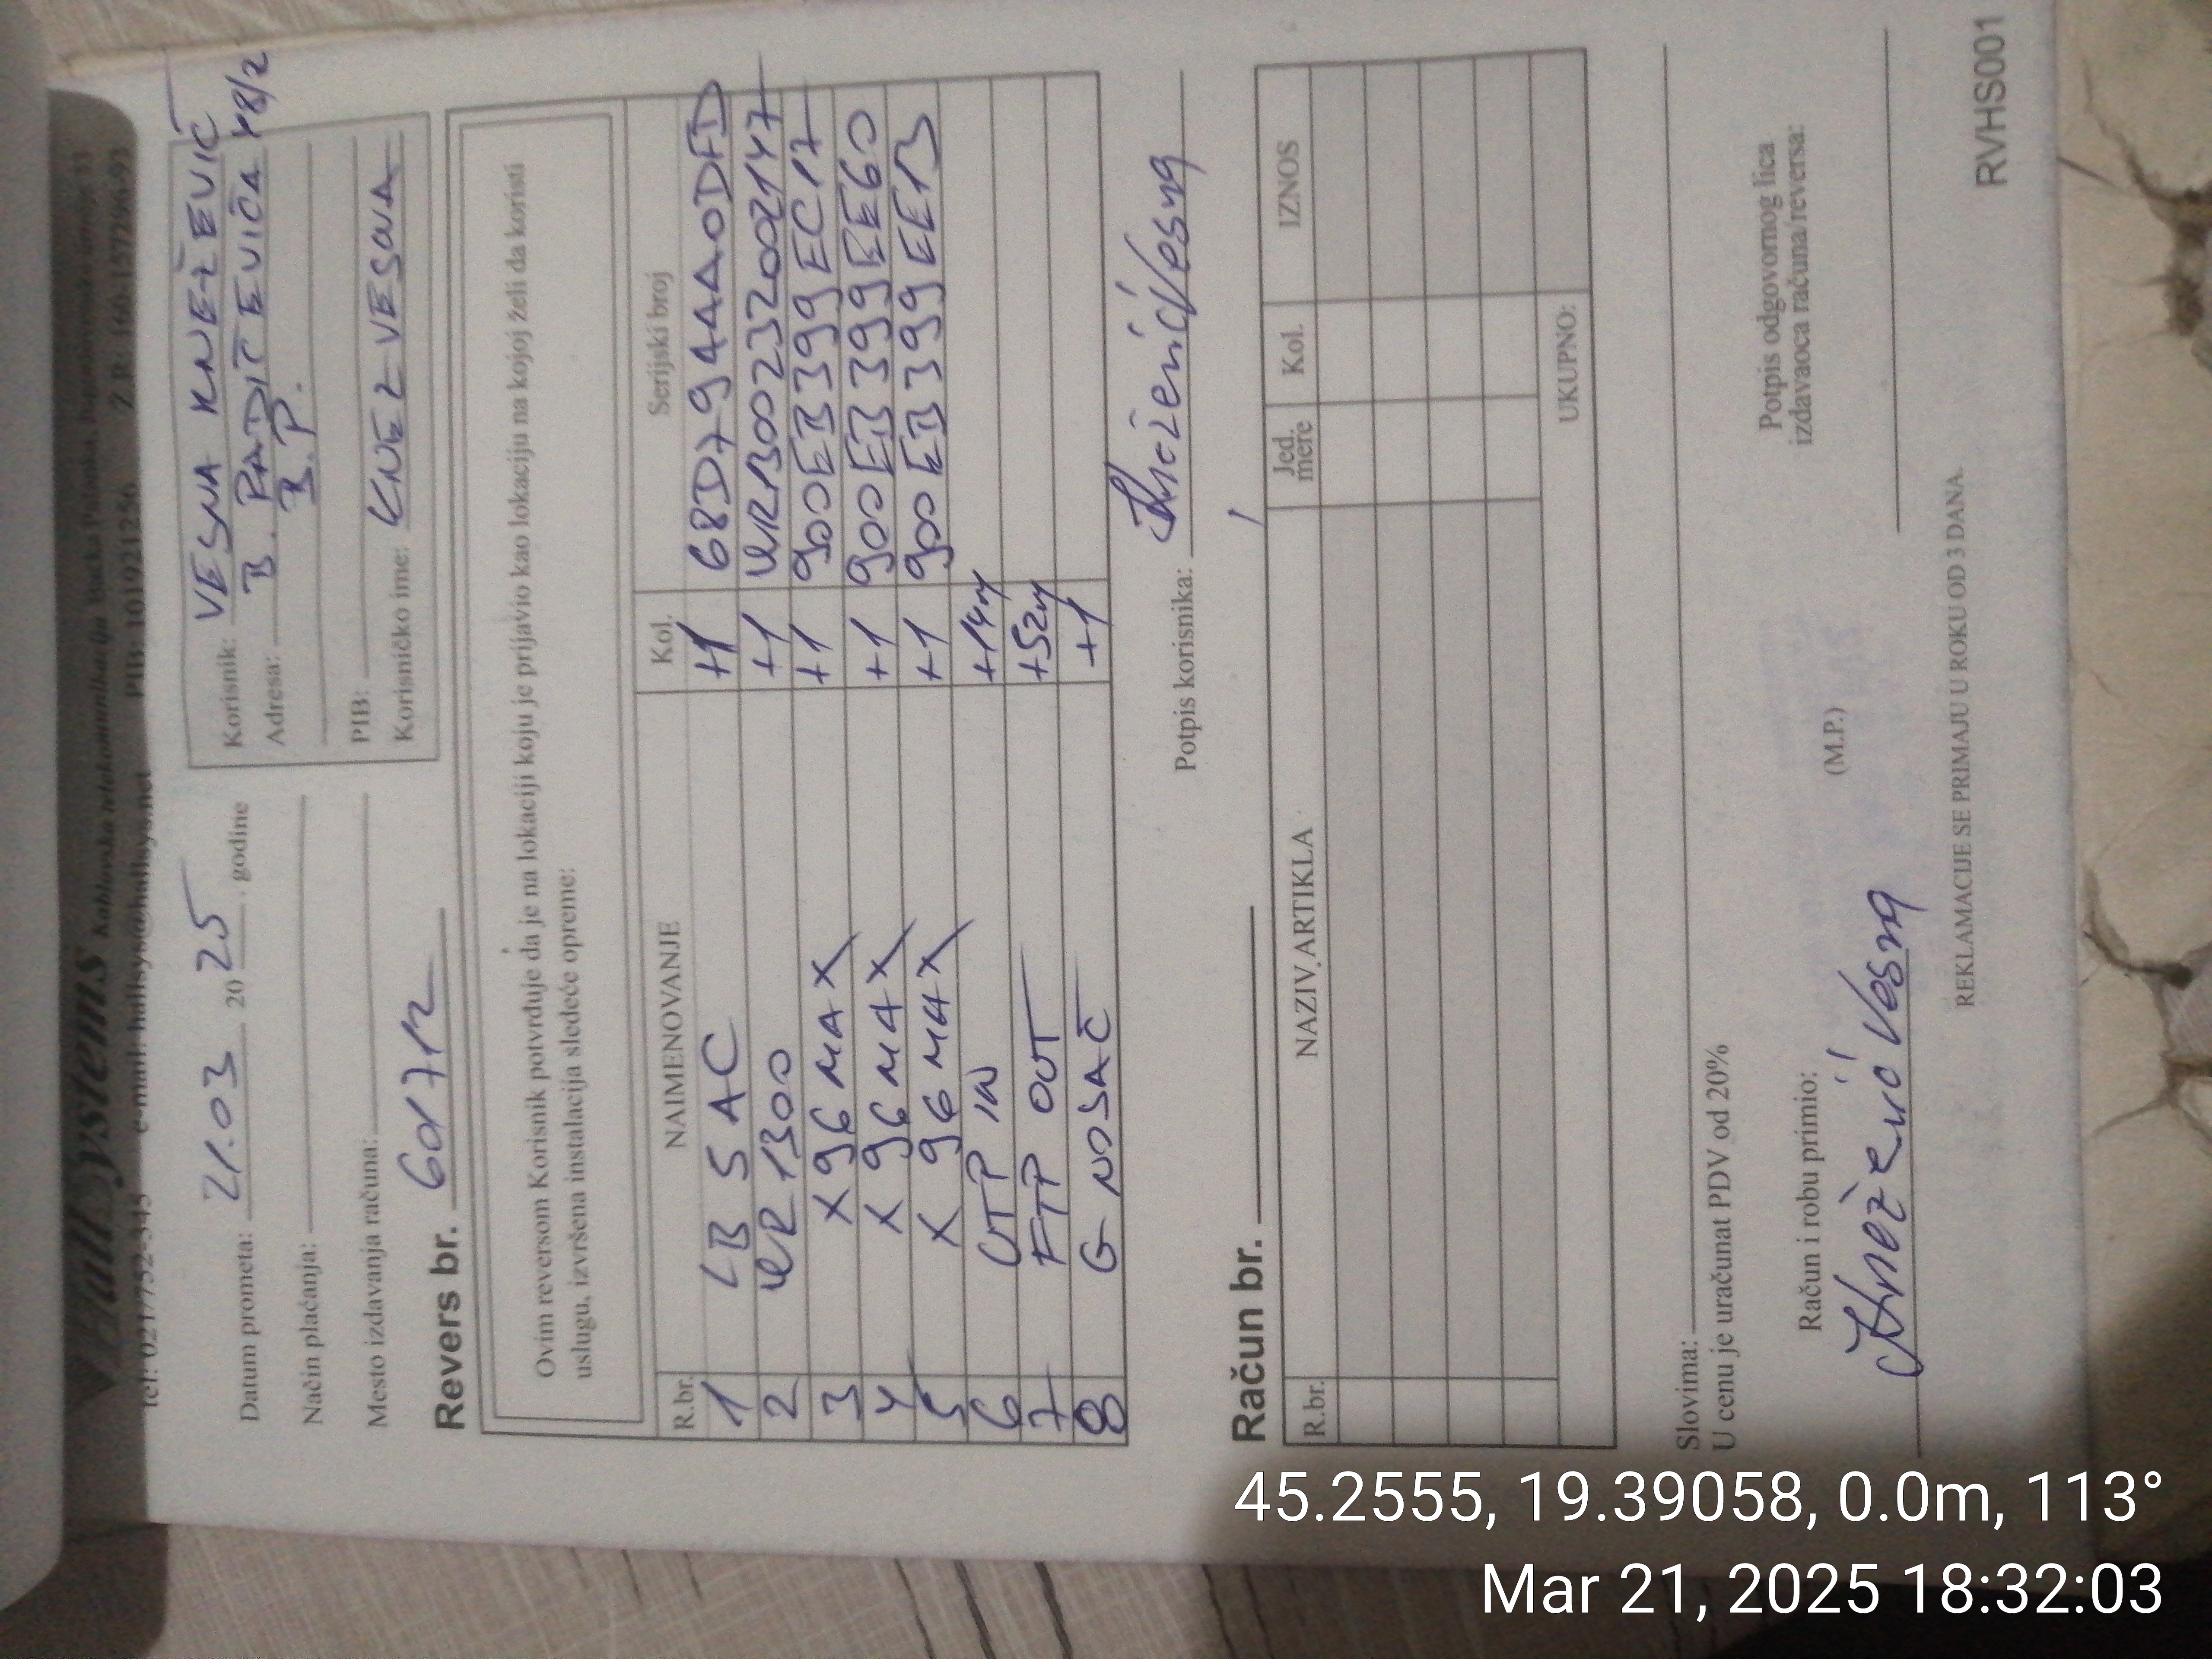 HallSystems Kablovska telekomunikacija
tel: 021/752-345 e-mail: hallsys@hallsys.net PIB: 101921256
Datum prometa: 21.03 2025. godine
Način plaćanja:
Mesto izdavanja računa:
Korisnik: VESNA KNEŽEVIĆ
Adresa: B. RADIČEVIĆA 48/2
B.P.
PIB:
Korisničko ime: KNEZ-VESNA
Revers br.
Ovim reversom Korisnik potvrđuje da je na lokaciji koju je prijavio kao lokaciju na kojoj želi da koristi
uslugu, izvršena instalacija sledeće opreme:
R.br. NAIMENOVANJE Kol. Serijski broj
1 LB 5 AC +1 68D794AA0DFD
2 WR 1300 +1 WR1300232002147
3 X96 MAX +1 900EB399EC17
4 X96 MAX +1 900EB399EE60
5 X96 MAX +1 900EB399EE13
6 UTP IN +14m
7 FTP OUT +52m
8 G NOSAČ +1
Potpis korisnika: Knežević Vesna
Račun br.
R.br. NAZIV ARTIKLA Jed. mere Kol. IZNOS
UKUPNO:
Slovima:
U cenu je uračunat PDV od 20%
Račun i robu primio:
Knežević Vesna
(M.P.)
Potpis odgovornog lica
izdavaoca računa/reversa:
REKLAMACIJE SE PRIMAJU U ROKU OD 3 DANA.
RVHS001
45.2555, 19.39058, 0.0m, 113°
Mar 21, 2025 18:32:03